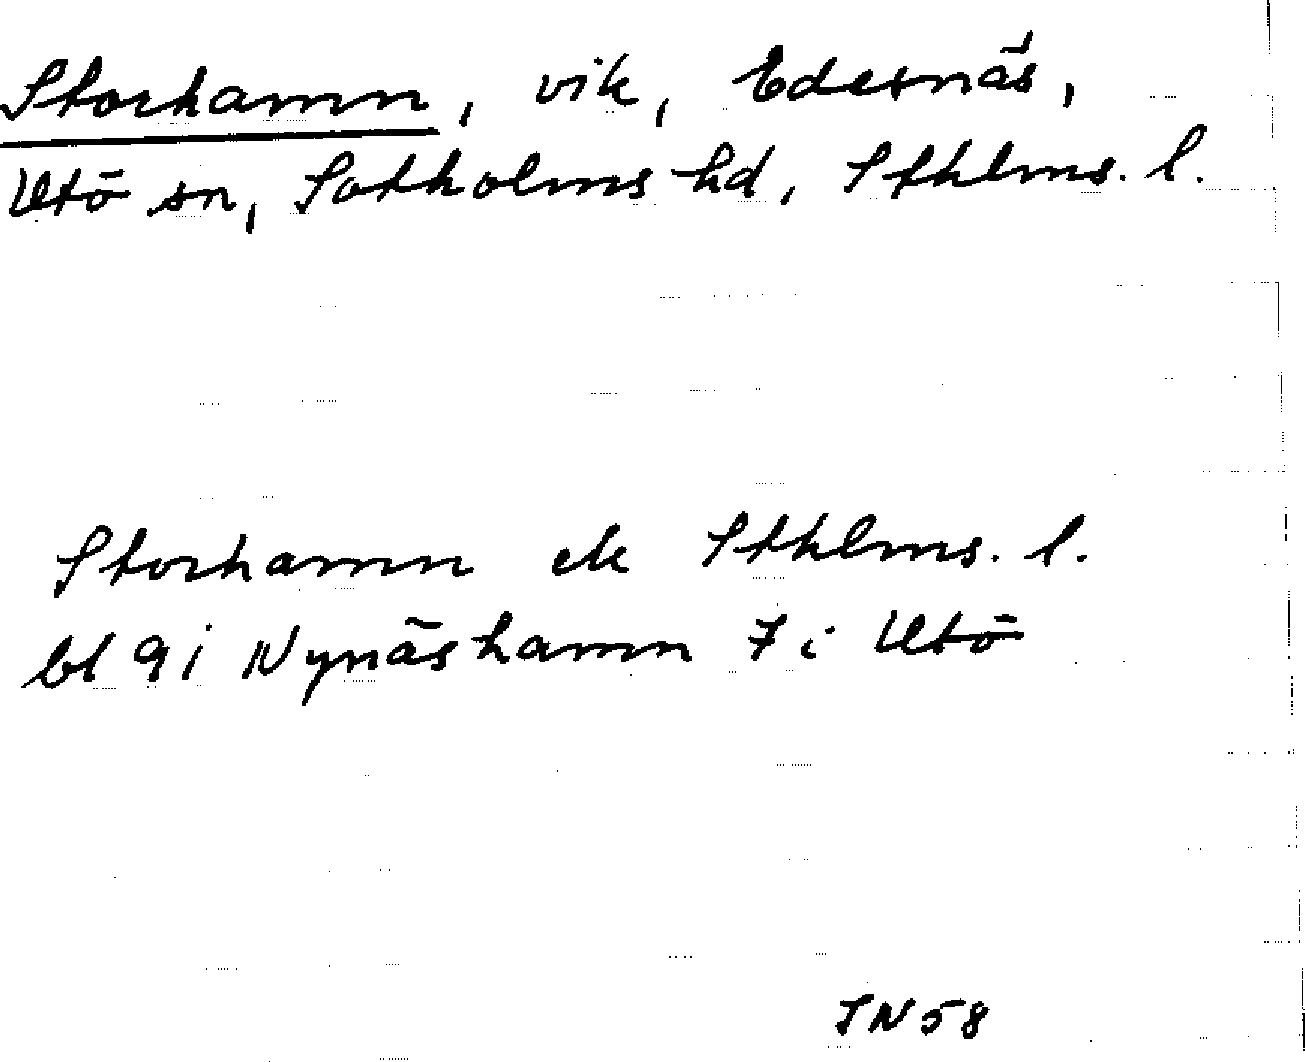 Storhamn, vik, Edesnäs,
Utö sn, Sotholms hd, Sthlms. l.
Storhamn ek Sthlms. l.
bl 9i Nynäshamn 7 i Utö
IN 58